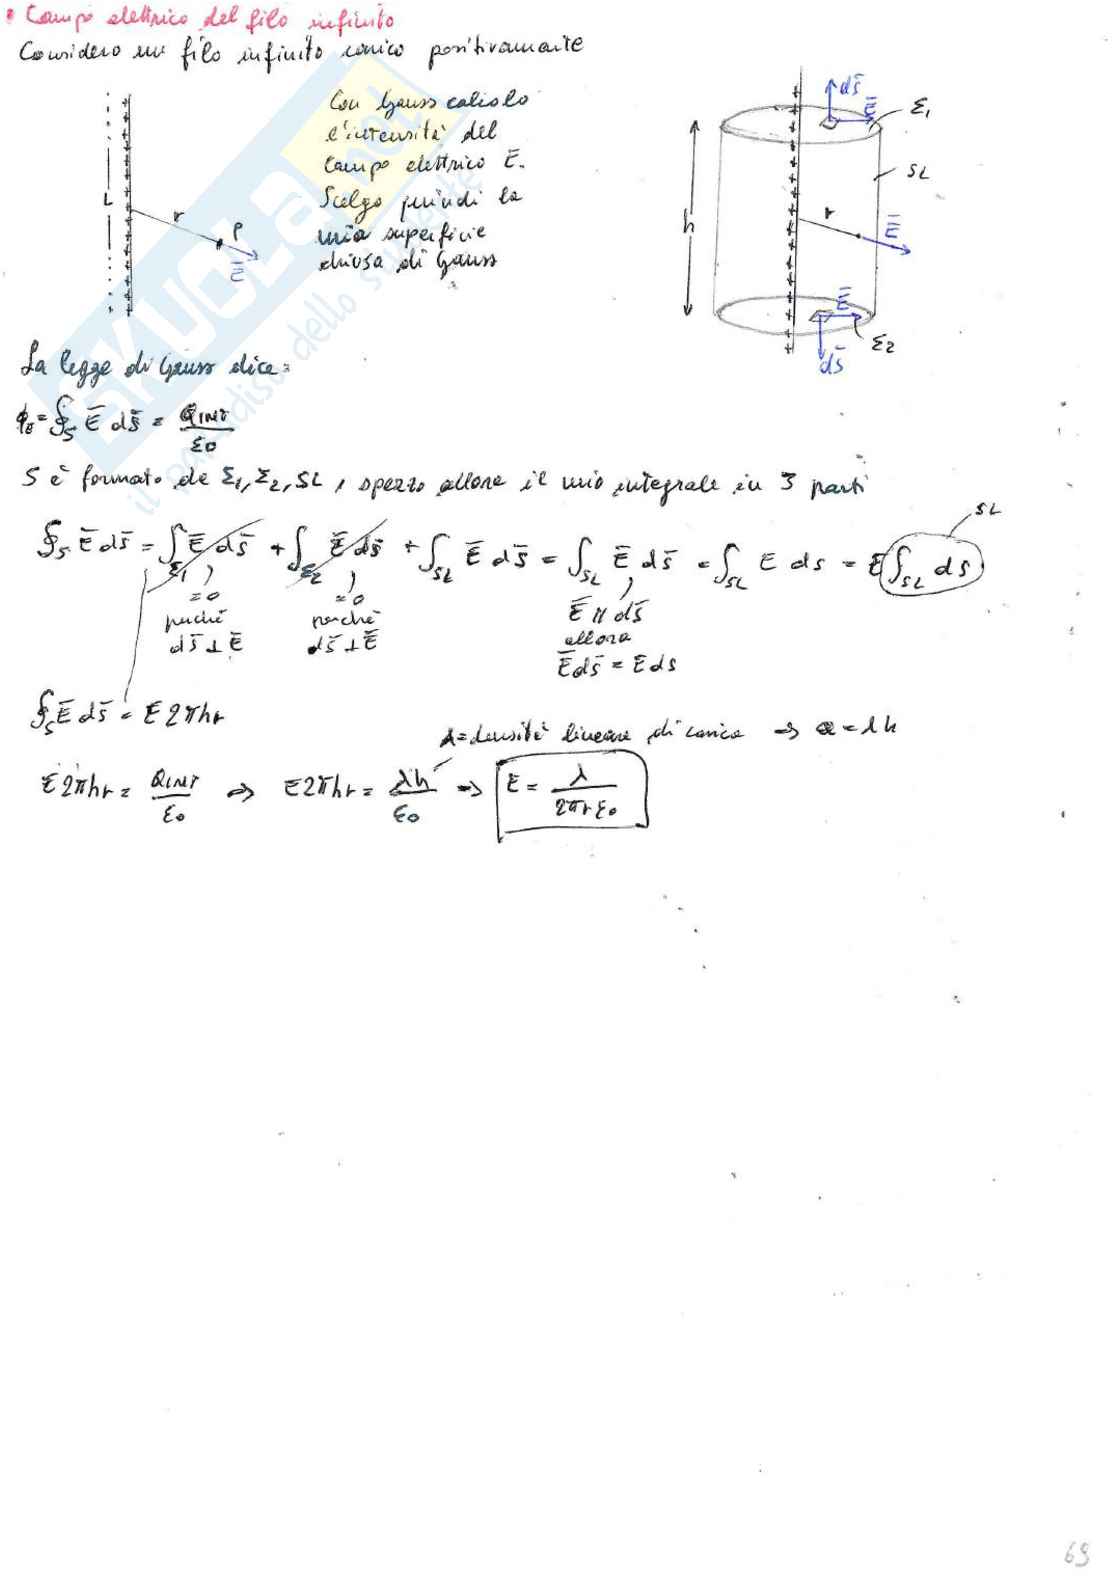 • Campo elettrico del filo infinito
Considero un filo infinito carico positivamente
Con Gauss calcolo
l'intensità del
campo elettrico E̅.
Scelgo quindi la
mia superficie
chiusa di Gauss
L
r
P
E̅
ds̅
E̅
Σ1
SL
h
r
E̅
E̅
Σ2
ds̅
La legge di Gauss dice:
ϕE = ∮S E̅ ds̅ = QINT/ε0
S è formato da Σ1, Σ2, SL, spezzo allora il mio integrale in 3 parti
∮S E̅ ds̅ = ∫Σ1 E̅ ds̅ + ∫Σ2 E̅ ds̅ + ∫SL E̅ ds̅ = ∫SL E̅ ds̅ = ∫SL E ds = E ∫SL ds
SL
= 0 perché ds̅ ⊥ E̅
= 0 perché ds̅ ⊥ E̅
E̅ // ds̅
allora
E̅ ds̅ = E ds
∮S E̅ ds̅ = E 2πhr
λ = densità lineare di carica => Q = λh
E 2πhr = QINT/ε0 => E 2πhr = λh/ε0 => E = λ/2πrε0
69
SKUOLA.net
il paradiso dello studente